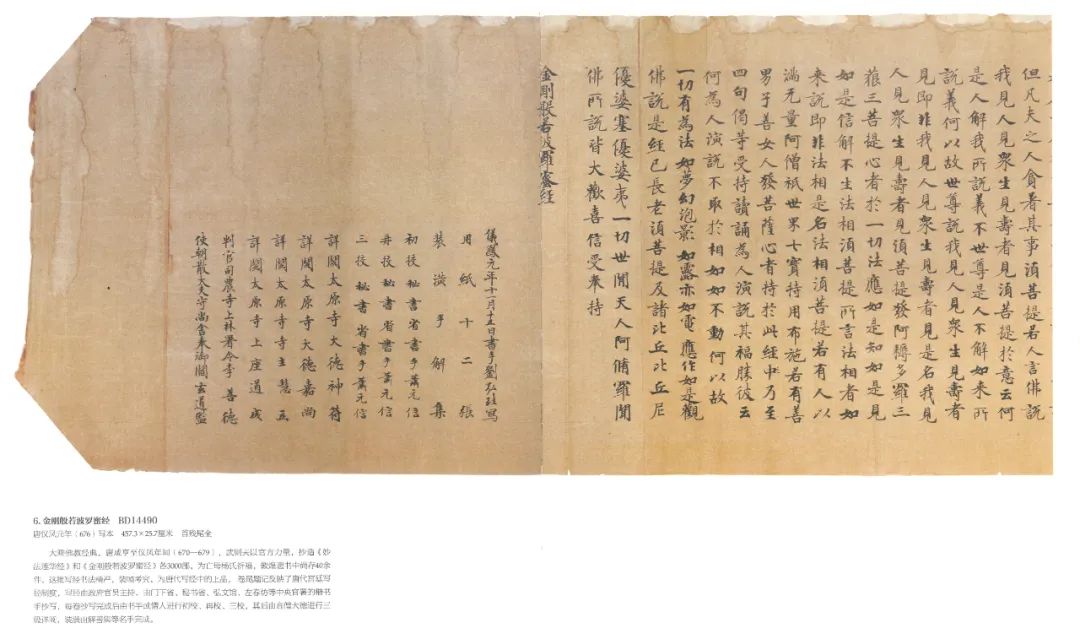 但凡夫之人貪著其事須菩提若人言佛說
我見人見眾生見壽者見須菩提於意云何
是人解我所說義不世尊是人不解如來所
說義何以故世尊說我見人見眾生見壽者
見即非我見人見眾生見壽者見是名我見
人見眾生見壽者見須菩提發阿耨多羅三
藐三菩提心者於一切法應如是知如是見
如是信解不生法相須菩提所言法相者如
來說即非法相是名法相須菩提若有人以
滿无量阿僧祇世界七寶持用布施若有善
男子善女人發菩薩心者持於此經中乃至
四句偈等受持讀誦為人演說其福勝彼云
何為人演說不取於相如如不動何以故
一切有為法如夢幻泡影如露亦如電應作如是觀
佛說是經已長老須菩提及諸比丘比丘尼
優婆塞優婆夷一切世間天人阿脩羅聞
佛所說皆大歡喜信受奉持
金剛般若波羅蜜經
儀鳳元年十一月十五日書手劉弘珪寫
用紙十二張
裝潢手解集
初校秘書省書手蕭元信
再校秘書省書手蕭元信
三校秘書省書手蕭元信
詳閱太原寺大德神符
詳閱太原寺大德嘉尚
詳閱太原寺寺主慧立
詳閱太原寺上座道成
判官司農寺上林署令李善德
使朝散大夫守尚舍奉御閻玄道監
6.金刚般若波罗蜜经 BD14490
唐仪凤元年（676）写本 457.3×25.7厘米 首残尾全
大乘佛教经典。唐咸亨至仪凤年间（670—679），武则天以官方力量，抄造《妙
法莲华经》和《金刚般若波罗蜜经》各3000部，为亡母杨氏祈福，敦煌遗书中尚存40余
件。这批写经书法精严，装潢考究，为唐代写经中的上品。卷尾题记反映了唐代宫廷写
经制度，写经由政府官员主持，由门下省、秘书省、弘文馆、左春坊等中央官署的楷书
手抄写，每卷抄写完成后由书手或僧人进行初校、再校、三校，其后由高僧大德进行三
级详阅，装潢由解善集等名手完成。